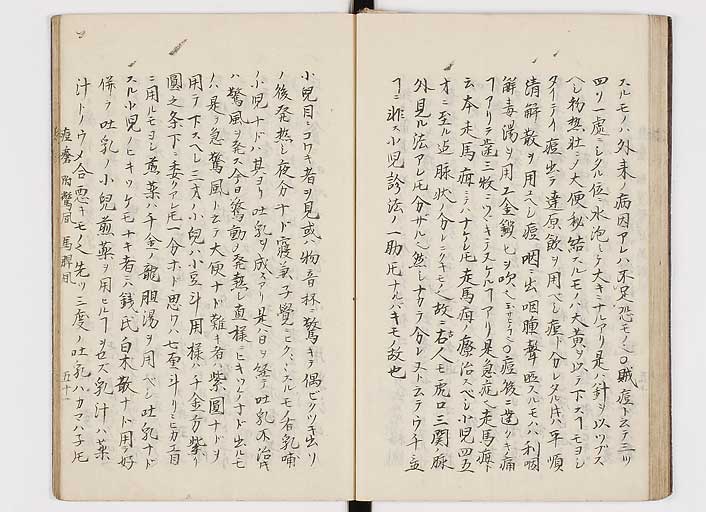 スルモノハ外来ノ病因アレハ不足恐モノ也〇賊痘ト云テ三ツ
四ツ一處ニシタル位ニ水泡ニテ大キニナルアリ是ハ針ヲ以ツブス
ヘシ物熱壮ニシテ大便秘結スルモノハ大黄ヲ以テ下スヿモヨシ
タイテイ痘出テ達原飲ヲ用ヘシ痘ト分レタル片ハ平順
清解散ヲ用ユヘシ痘咽ニ出咽腫聲啞スルモノハ利咽
解毒湯ヲ用工金鎖ヒヲ吹ヘシ〇痘後ニ歯クキ痛
アリテ歯一枚ニツキテスケルヿアリ是急症也走馬疳ト
云本走馬疳ニハナケレ圧走馬疳ノ療治スヘシ小児四五
才ニ至ル迠脉状ハ分レニクキモノ也故ニ古人モ虎口三関ノ脉
外見ル法アレ圧分ザル也然シナカラ分レスト云テウチ
ヿニ非ス小児診法ノ一助圧ナルベキモノ故也
小児目ニコワキ者ヲ見或ハ物音杯ニ驚キテ偶ビクツキ出リ
ノ後発熱シ夜分ナド寝兼子覺ビクビクスルモノ者乳哺
ノ小児ナドハ其ヨリ吐乳ヲ成スアリ是ハ日ヲ経テ吐乳不治片
ハ驚風ヲ発ス今日驚動ノ発熱シ直様ニヒキツケナド出ルモ
ノハ是ヲ急驚風ト云テ大便ナド難キ者ハ紫圓ナドヲ
用テ下スヘシ三才ノ小児ハ小豆斗用様ハ千金方紫
圓之条下ニ委クアレ圧一分ホド思ワハ七重斗リニヒカエ目
ニ用ルモヨシ煎薬ハ千金ノ龍胆湯ヲ用ヘシ吐乳ナド
スル小児ノヒキツケモナキ者ハ銭氏白朮散ナド用テ好
併ラ吐乳ノ小児煎薬ヲ用ヒルヿヲ也ズ乳汁ハ薬
汁トノウメ合悪キモノ也先ツ二三度ノ吐乳ハカマハ子圧
痘瘡 附驚風 馬脾風 五十一